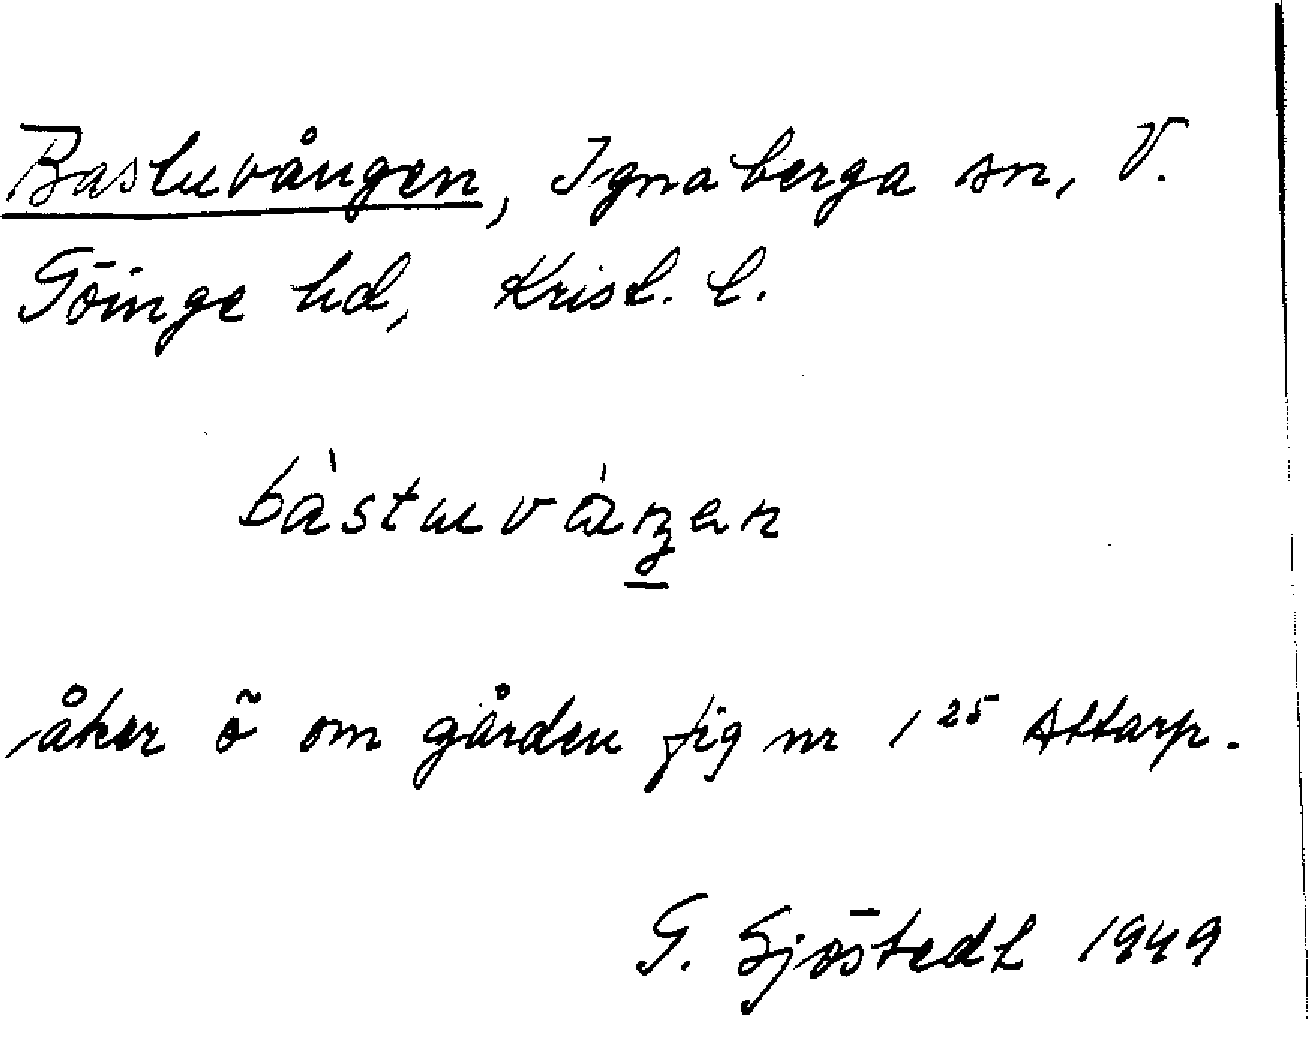 Bastuvången, Ignaberga sn, V.
Göinge hd, Krist. l.
bàstuvàŋen
åker ö om gården fig nr 1²⁵ Attarp.
G. Sjöstedt 1949